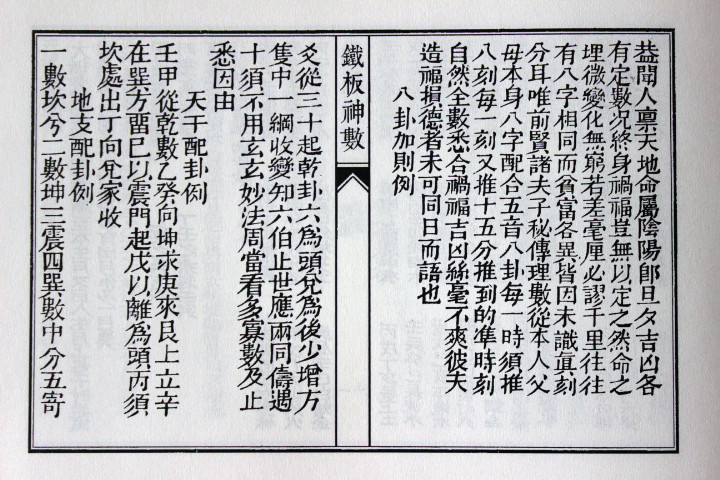 葢聞人禀天地命屬陰陽卽旦夕吉凶各
有定數况終身禍福豈無以定之然命之
埋微變化無窮若差毫厘必謬千里往往
有八字相同而貧富各異皆因未識眞刻
分耳唯前賢諸夫子秘傳理數從本人父
母本身八字配合五音八卦每一時須推
八刻每一刻又推十五分推到的準時刻
自然全數悉合禍福吉凶絲毫不爽彼夫
造福損德者未可同日而語也
八卦加則例
鐵板神數
爻從三十起乾卦六為頭兊為後少增方
隻中一綱收變知六伯止世應兩同儔遇
十須不用玄玄妙法周當看多寡數及止
悉因由
天干配卦例
壬甲從乾數乙癸向坤求庚來艮上立辛
在巽方畱巳以震門起戊以離為頭丙須
坎處出丁向兊家收
地支配卦例
一數坎兮二數坤三震四巽數中分五寄